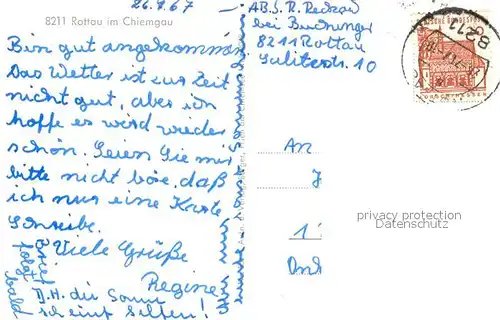 26.9.67
8211 Rottau im Chiemgau
Bin gut angekommen.
Das Wetter ist zur Zeit
nicht gut, aber ich
hoffe es wird wieder
schön. Seien Sie mir
bitte nicht böse, daß
ich nur eine Karte
schreibe.
Viele Grüße
Regine
Brief
folgt
bald
D.H. die Sonne
scheint selten!
ABS. R.
bei Buchinger
8211 Rottau
10
8211
An
privacy protection
DatenSchutz